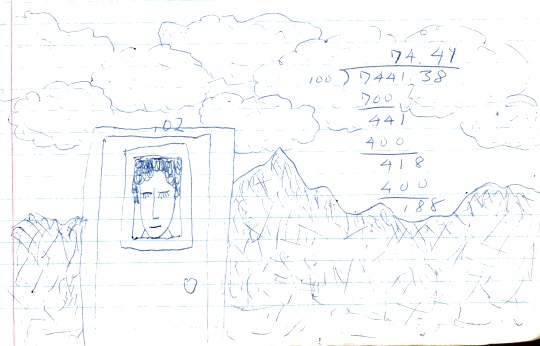 74.41
100 ) 7441.38
700
441
400
418
400
188
102